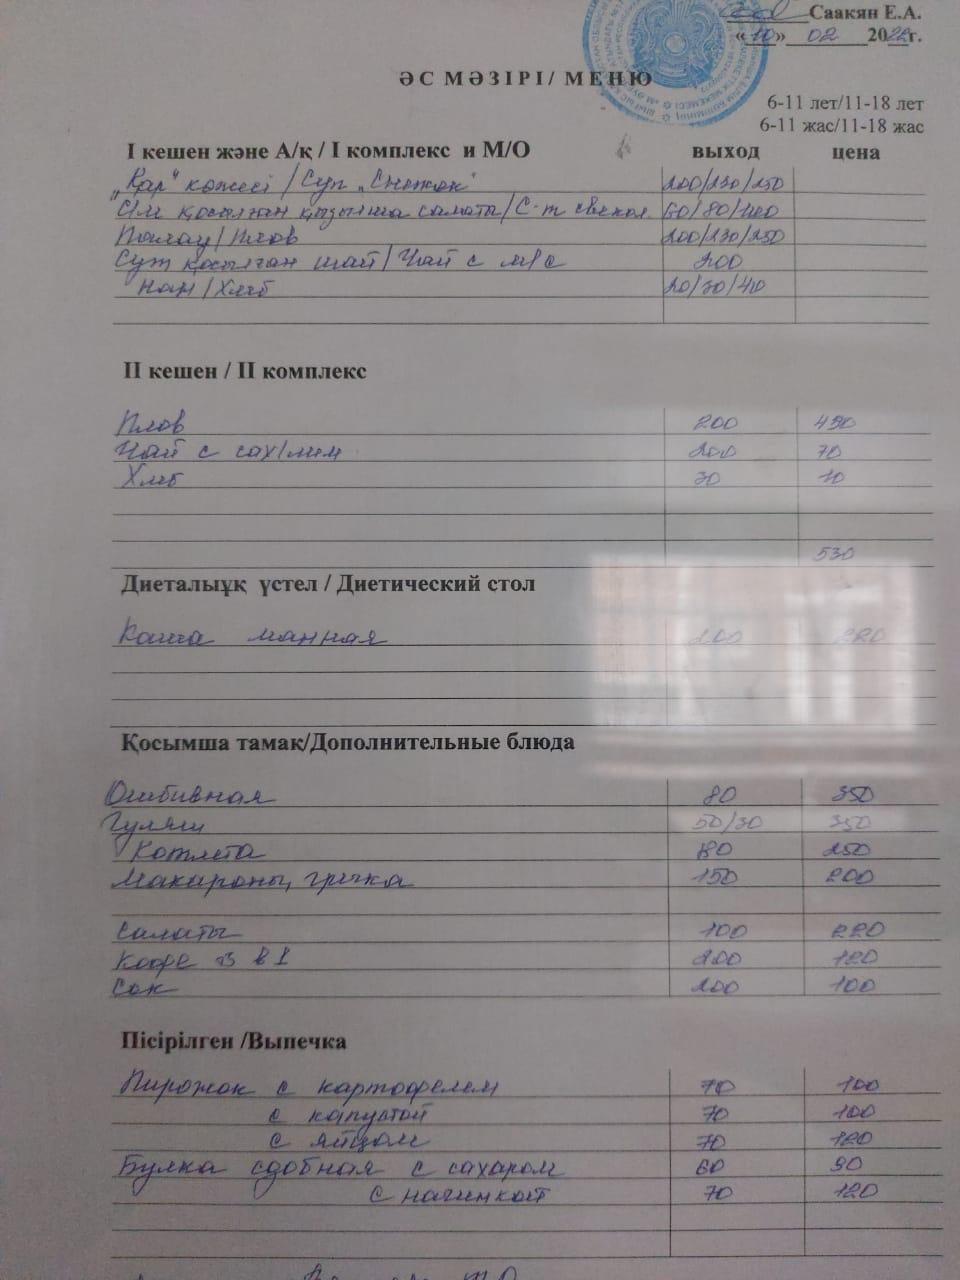 Саакян Е.А.
«10» 02 2022г.
ӘС МӘЗІРІ/ МЕНЮ
6-11 лет/11-18 лет
6-11 жас/11-18 жас
I кешен және А/қ / I комплекс и М/О выход цена
„Қар" көжесі / Суп „Снежок" 200/230/250
Сім қосылған қызылша салаты/С-т свекол. 60/80/100
Палау/Плов 200/230/250
Сүт қосылған шай/Чай с м/с 200
Нан/Хлеб 20/30/40
II кешен / II комплекс
Плов 200 450
Чай с сах/лим 200 70
Хлеб 30 10
530
Диеталыұқ үстел / Диетический стол
Каша манная 200 220
Қосымша тамак/Дополнительные блюда
Отбивная 80 350
Гуляш 50/30 350
Котлета 80 250
Макароны, гречка 150 200
Салаты 100 220
Кофе 3 в 1 200 120
Сок 200 100
Пісірілген /Выпечка
Пирожок с картофелем 70 100
с капустой 70 100
с яйцом 70 120
Булка сдобная с сахаром 60 90
с начинкой 70 120